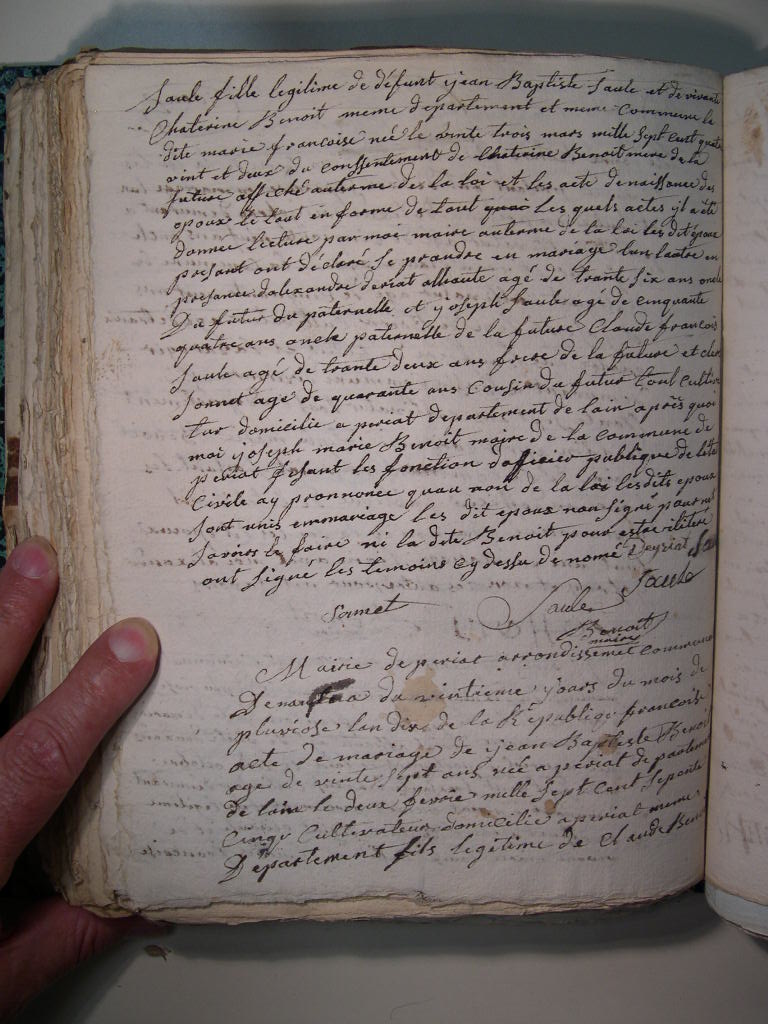 Saule fille legitime de défunt ijean Baptiste Saule et de vivante
Chaterine Benoit meme departement et meme Commune le
dite marie francoise née le vinte trois mars mille Sept Cent quatre
vint et deux du conssentement de Chaterine Benoit mere de la
future affiché auterme de la loi et les acte denaissance des
epoux le tout en forme de tout quoi les quels actes ij a été
donnee lecture par moi maire auterme de la loi les dit epoux
presant ont déclaré se prandre en mariage lun lautre en
presance dalexandre deriat agé de trante six ans oncle
Du futur du paternelle et ijoseph Saule agé de cinquante
quatre ans oncle paternelle de la future Claude francois
Saule agé de trante deux ans frere de la future et
Sonnet agé de quarante ans Cousin du futur tout Cultiva
tur domicilié a periat departement de lain après quoi
moi ijoseph marie Benoit maire de la commune de
periat fesant les fonction dofficier publique de léta
Civile aij pronnoncé quau non de la loi les dits epoux
Sont unis emmariage les dit epoux non Signé pour ne
Savoirs le faire ni la dite Benoit pour estre iliteré
ont Signé les temoins cij dessu de nomé Deyriat
Sonnet Saule Saule
Benoit
maire
Mairie de periat arrondissemet Commune
De nantua du vintieme ijours du mois de
pluviose lan dix de la Republiqu francoise
acte de mariage de ijean Baptiste Benoi
age de vinte Sept ans née a periat departement
de lain le deux fevrie mille Sept Cent Septente
Cinqu Cultivateur domicilié a periat meme
Departement fils legitime de Claude Benoi